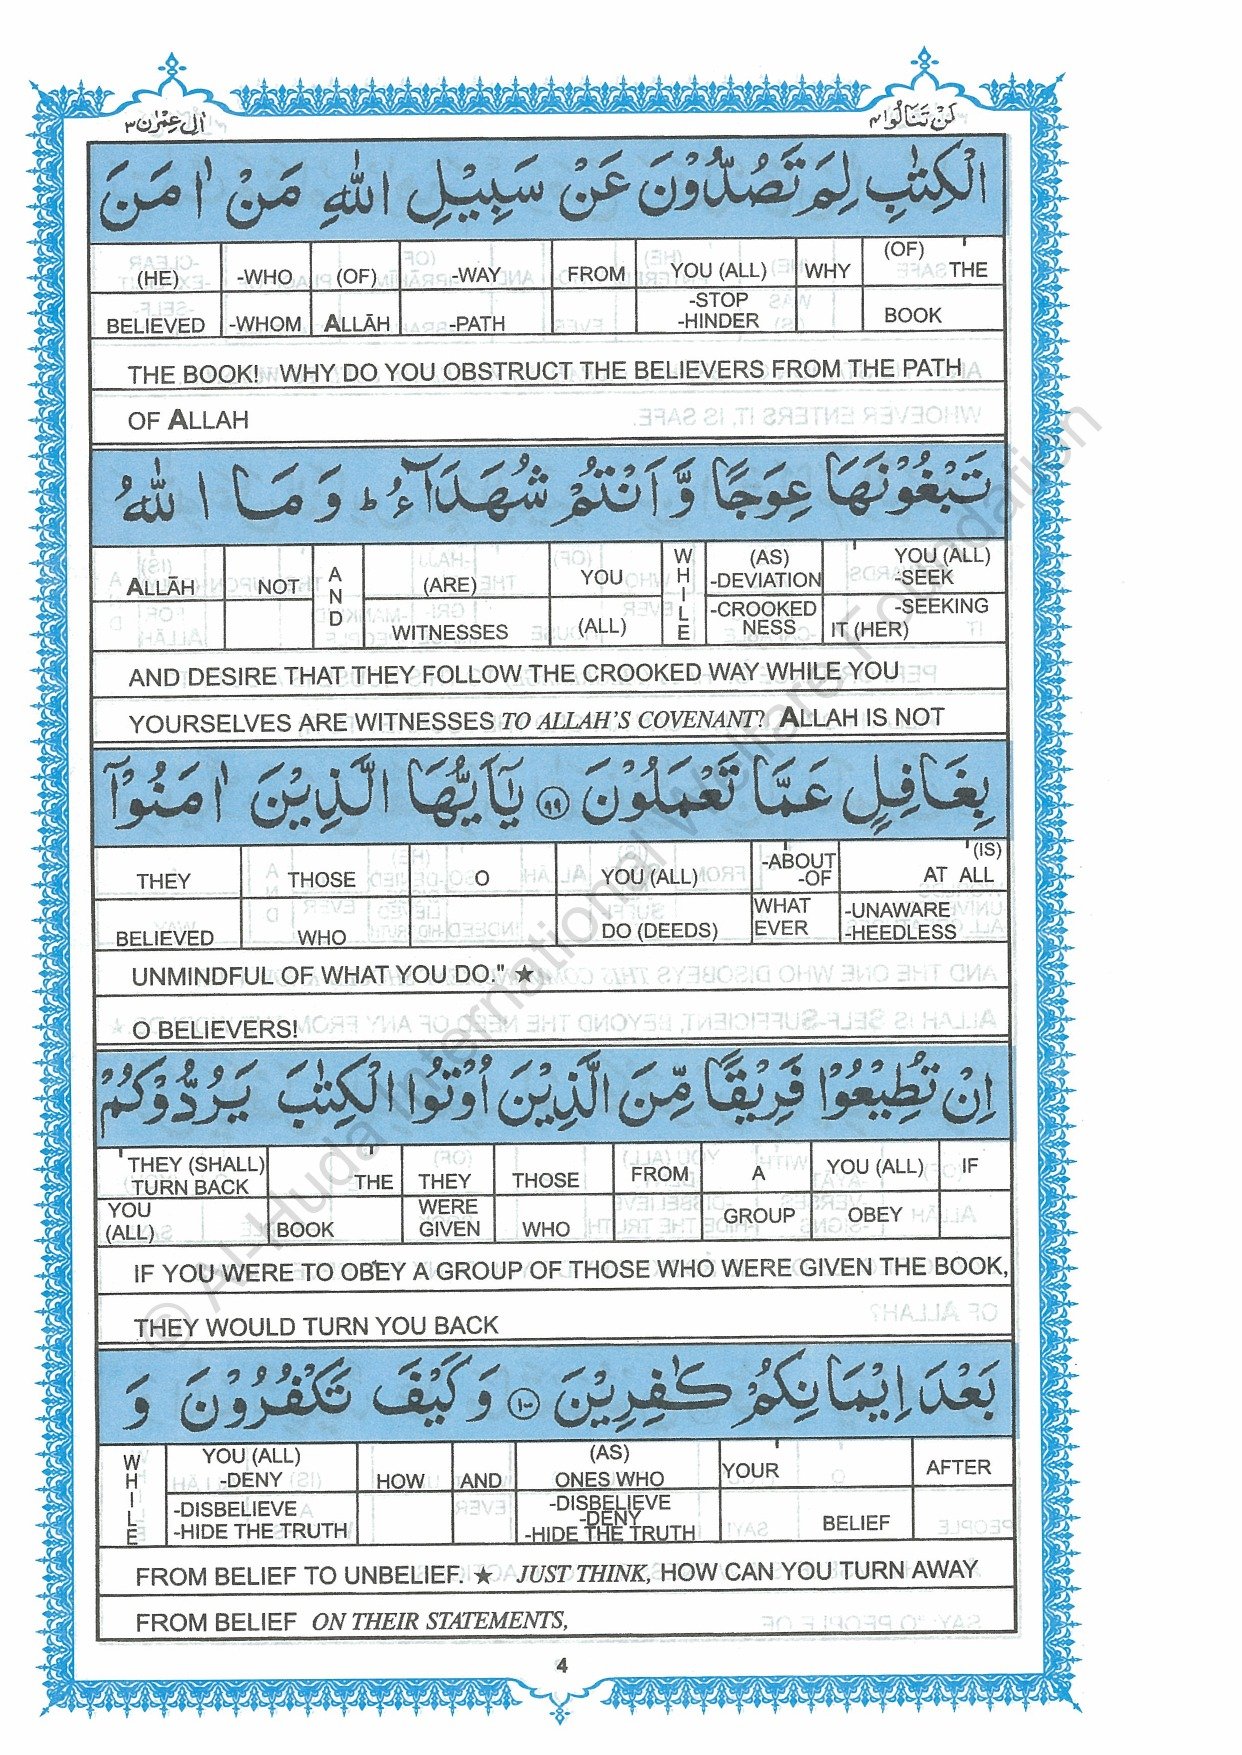 اٰل عِمْرٰن ٣
لَنْ تَنَالُوا ٤
الْكِتٰبِ لِمَ تَصُدُّوْنَ عَنْ سَبِيْلِ اللّٰهِ مَنْ اٰمَنَ
(HE) -WHO (OF) -WAY FROM YOU (ALL) WHY (OF) THE
BELIEVED -WHOM ALLĀH -PATH -STOP -HINDER BOOK
THE BOOK! WHY DO YOU OBSTRUCT THE BELIEVERS FROM THE PATH
OF ALLAH
تَبْغُوْنَهَا عِوَجًا وَّاَنْتُمْ شُهَدَآءُ ؕ وَمَا اللّٰهُ
ALLĀH NOT AND (ARE) YOU WHILE (AS) -DEVIATION YOU (ALL) -SEEK
WITNESSES (ALL) -CROOKED NESS -SEEKING IT (HER)
AND DESIRE THAT THEY FOLLOW THE CROOKED WAY WHILE YOU
YOURSELVES ARE WITNESSES TO ALLAH'S COVENANT? ALLAH IS NOT
بِغَافِلٍ عَمَّا تَعْمَلُوْنَ ﴿٩٩﴾ يٰۤاَيُّهَا الَّذِيْنَ اٰمَنُوْۤا
THEY THOSE O YOU (ALL) -ABOUT -OF (IS) AT ALL
BELIEVED WHO DO (DEEDS) WHAT EVER -UNAWARE -HEEDLESS
UNMINDFUL OF WHAT YOU DO." ★
O BELIEVERS!
اِنْ تُطِيْعُوْا فَرِيْقًا مِّنَ الَّذِيْنَ اُوْتُوا الْكِتٰبَ يَرُدُّوْكُمْ
THEY (SHALL) TURN BACK THE THEY THOSE FROM A YOU (ALL) IF
YOU (ALL) BOOK WERE GIVEN WHO GROUP OBEY
IF YOU WERE TO OBEY A GROUP OF THOSE WHO WERE GIVEN THE BOOK,
THEY WOULD TURN YOU BACK
بَعْدَ اِيْمَانِكُمْ كٰفِرِيْنَ ﴿١٠٠﴾ وَكَيْفَ تَكْفُرُوْنَ وَ
WHILE YOU (ALL) -DENY HOW AND (AS) ONES WHO YOUR AFTER
-DISBELIEVE -HIDE THE TRUTH -DISBELIEVE -DENY -HIDE THE TRUTH BELIEF
FROM BELIEF TO UNBELIEF. ★ JUST THINK, HOW CAN YOU TURN AWAY
FROM BELIEF ON THEIR STATEMENTS,
4
© Al-Huda International Welfare Foundation